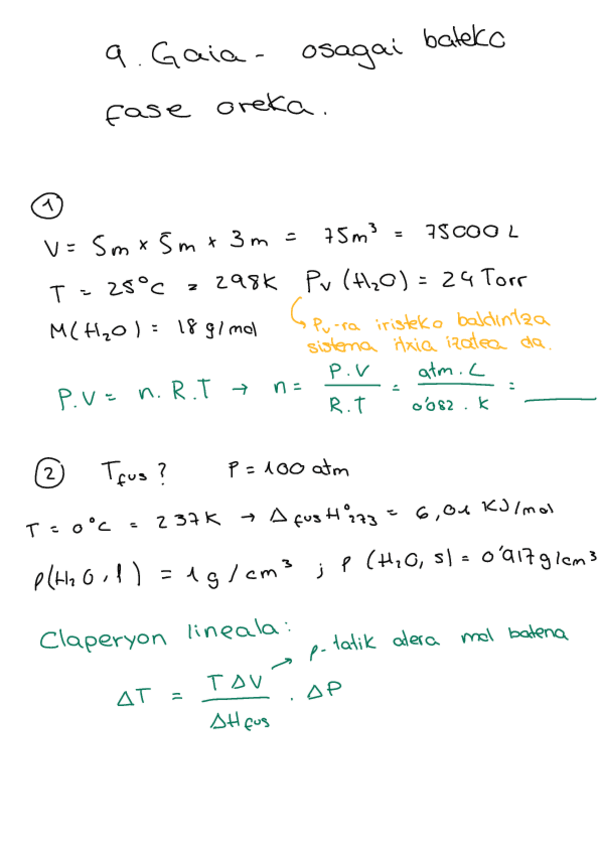 9. Gaia - osagai bateko
fase oreka.
①
V = 5m × 5m × 3m = 75m³ = 75000 L
T = 25°C = 298K Pv (H₂O) = 24 Torr
M(H₂O) = 18 g/mol
↳ Pv-ra iristeko baldintza
sistema itxia izatea da.
P.V = n.R.T → n = P.V / R.T = atm.L / 0'082 . K = ______
② Tfus? P = 100 atm
T = 0°C = 237K → ΔfusH°273 = 6,01 KJ/mol
ρ(H₂O, l) = 1g/cm³ ; ρ (H₂O, s) = 0'917g/cm³
Claperyon lineala:
→ ρ-tatik atera mol batena
ΔT = TΔV / ΔHfus . ΔP